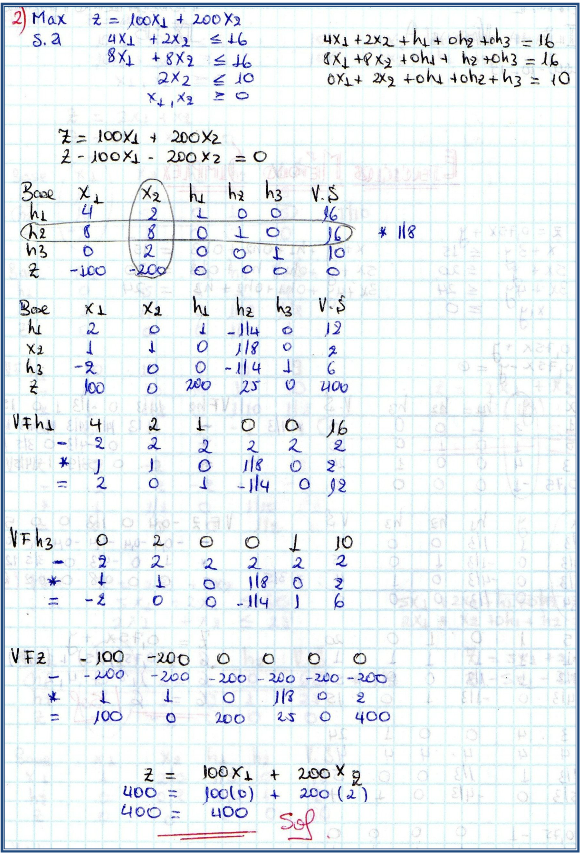 2) Max Z = 100X1 + 200X2
S.a 4X1 + 2X2 ≤ 16 4X1 + 2X2 + h1 + 0h2 + 0h3 = 16
8X1 + 8X2 ≤ 16 8X1 + 8X2 + 0h1 + h2 + 0h3 = 16
2X2 ≤ 10 0X1 + 2X2 + 0h1 + 0h2 + h3 = 10
X1, X2 ≥ 0
Z = 100X1 + 200X2
Z - 100X1 - 200X2 = 0
Base X1 X2 h1 h2 h3 V.S
h1 4 2 1 0 0 16
h2 8 8 0 1 0 16 * 1/8
h3 0 2 0 0 1 10
Z -100 -200 0 0 0 0
Base X1 X2 h1 h2 h3 V.S
h1 2 0 1 -1/4 0 12
X2 1 1 0 1/8 0 2
h3 -2 0 0 -1/4 1 6
Z 100 0 200 25 0 400
VFh1 4 2 1 0 0 16
- 2 2 2 2 2 2
* 1 1 0 1/8 0 2
= 2 0 1 -1/4 0 12
VFh3 0 2 0 0 1 10
- 2 2 2 2 2 2
* 1 1 0 1/8 0 2
= -2 0 0 -1/4 1 6
VFZ -100 -200 0 0 0 0
- -200 -200 -200 -200 -200 -200
* 1 1 0 1/8 0 2
= 100 0 200 25 0 400
Z = 100X1 + 200X2
400 = 100(0) + 200(2)
400 = 400 Sol